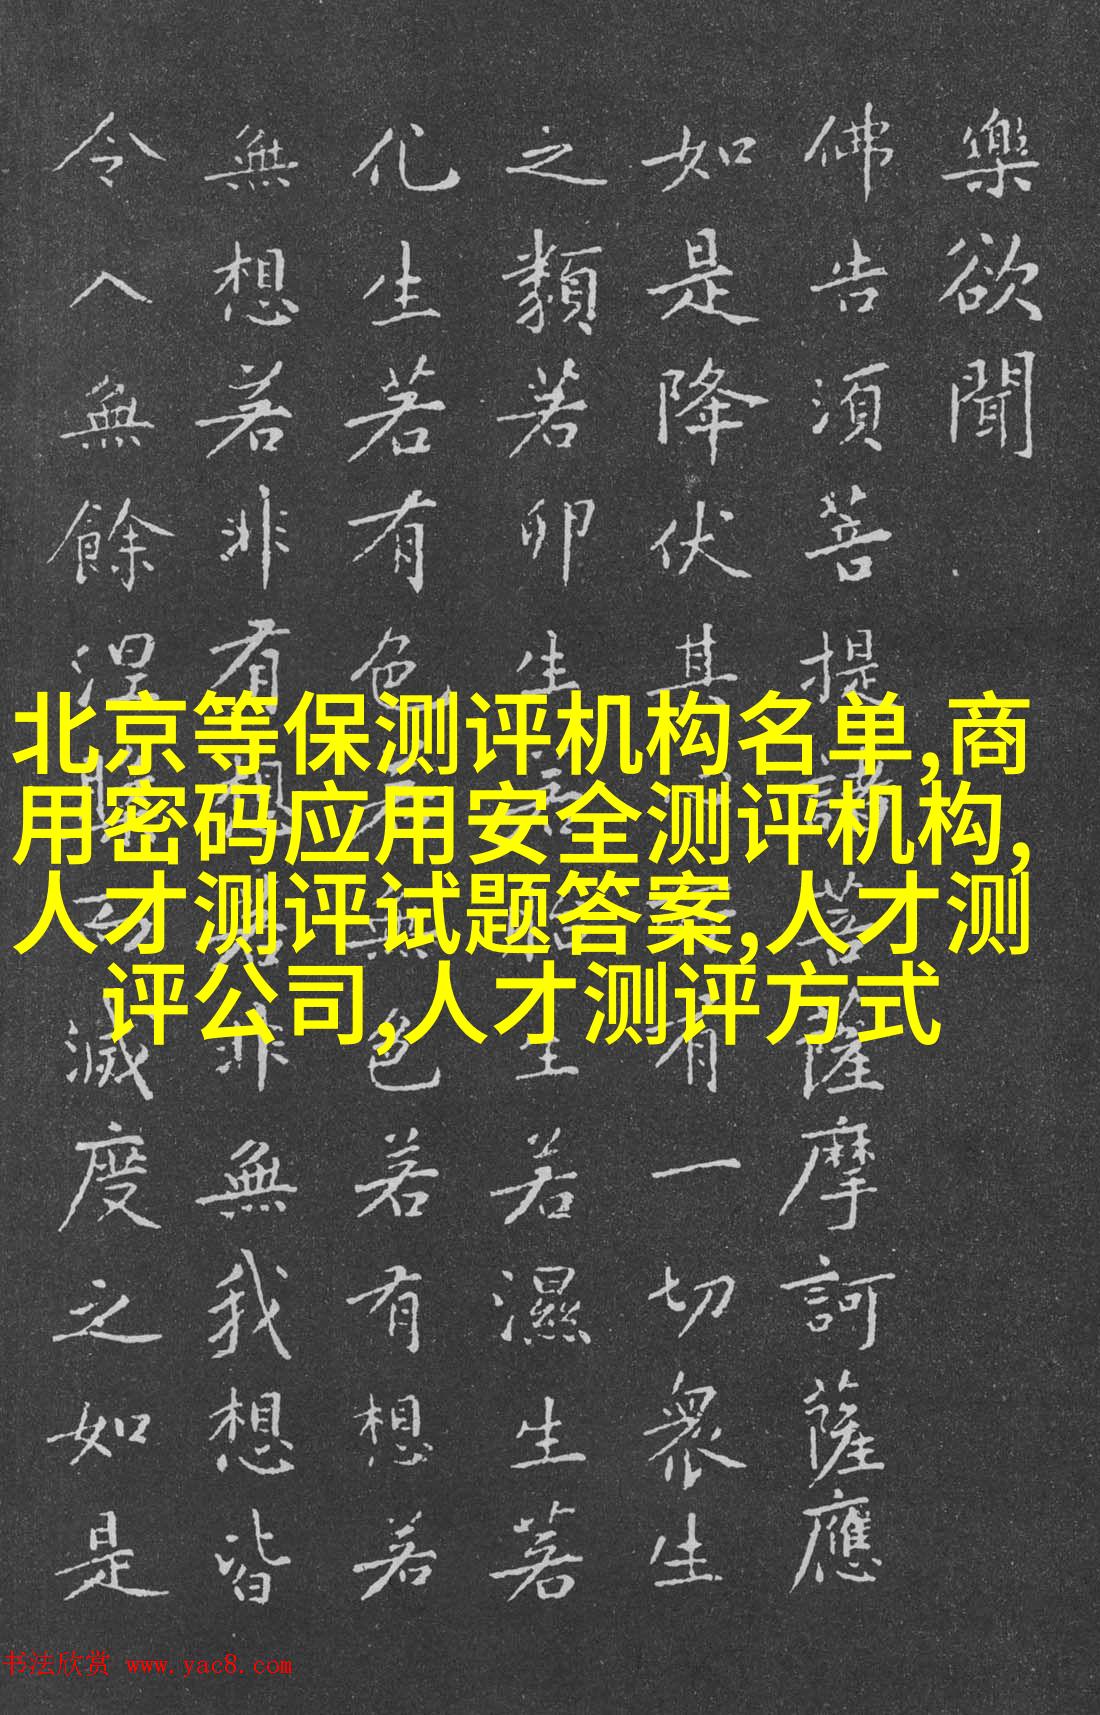 樂欲聞
佛告須菩提諸菩薩摩訶薩應
如是降伏其有一切衆生
之類若卵生若胎生若濕生若
化生若有色若無色若有想若
無想若非有想若非無我想皆
令入無餘涅滅度之如是
北京等保测评机构名单,商
用密码应用安全测评机构,
人才测评试题答案,人才测
评公司,人才测评方式
书法欣赏 www.yac8.com